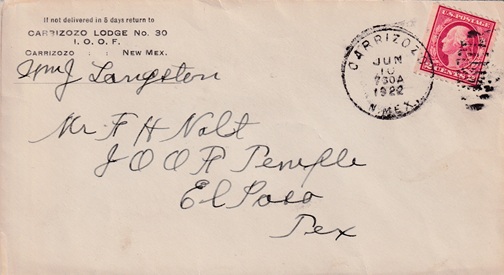 If not delivered in 5 days return to
CARRIZOZO LODGE No. 30
I. O. O. F.
CARRIZOZO : : NEW MEX.
Wm J Langston
CARRIZOZO
JUN
10
730A
1922
N.MEX.
U.S. POSTAGE
CENTS
Mr F H Nolt
I O O F Temple
El Paso
Tex